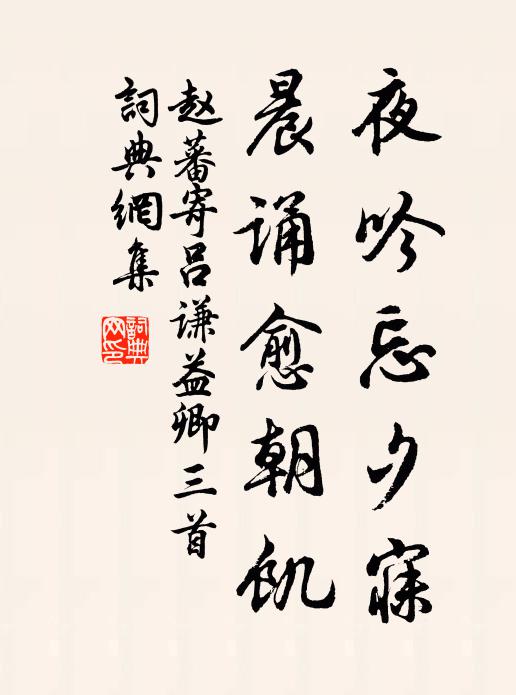 夜吟忘夕寐
晨诵愈朝饥
赵蕃寄吕谦益卿三首
詞典網集
詞典网印